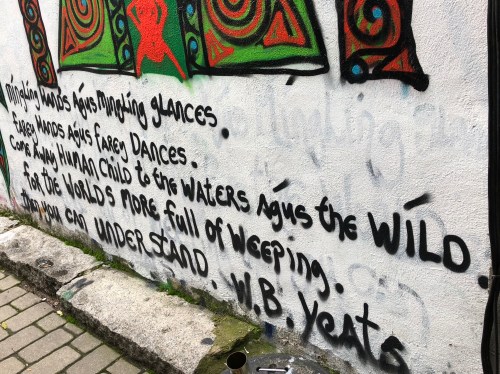 Mingling Hands Agus Mingling glances.
Farey Hands Agus Farey Dances.
Come Away Human Child to the Waters Agús the Wíld.
For the Worlds more full of Weeping.
then you can understand. W.B. Yeats